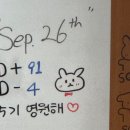 Sep. 26th
D + 91
D - 4
영원해